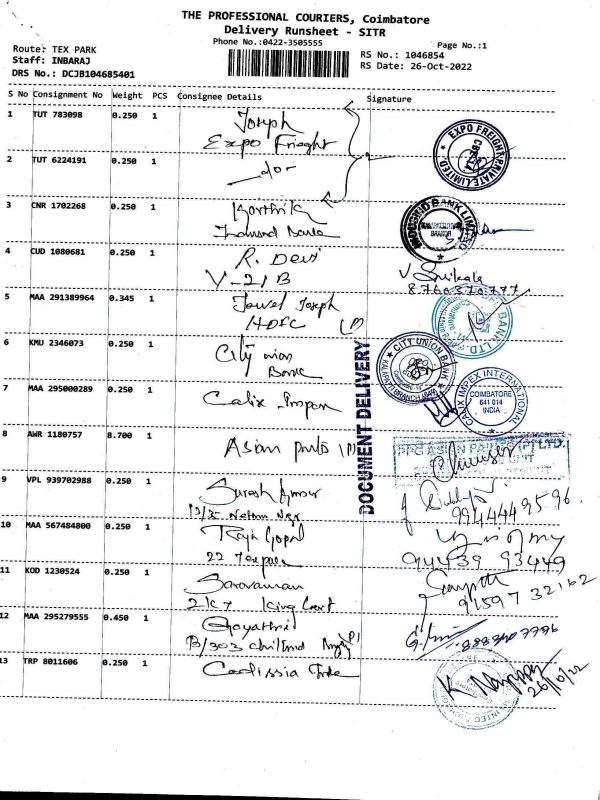 THE PROFESSIONAL COURIERS, Coimbatore
Delivery Runsheet - SITR
Phone No.:0422-3505555
Page No.:1
Route: TEX PARK
Staff: INBARAJ
DRS No.: DCJB104685401
RS No.: 1046854
RS Date: 26-Oct-2022
S No Consignment No Weight PCS Consignee Details Signature
1 TUT 783098 0.250 1 Joseph
Expo Frieght
EXPO FREIGHT PRIVATE LIMITED
2 TUT 6224191 0.250 1 -do-
3 CNR 1702268 0.250 1 Karthik
BANK LIMITED
4 CUD 1080681 0.250 1 R. Devi
V-21B
V Srikala
5 MAA 291389964 0.345 1 Jowel Joseph
HDFC
BANK LTD
6 KMU 2346073 0.250 1 City union
Bank
CITY UNION BANK
7 MAA 295000289 0.250 1 Calix Impex
CALIX IMPEX INTERNATIONAL
COIMBATORE
641 014
INDIA
DOCUMENT DELIVERY
8 AWR 1180757 8.700 1 Asian paints
PPG ASIAN PAINTS (P) LTD.
9 VPL 939702988 0.250 1 Suresh Kumar
9944449596
10 MAA 567484800 0.250 1 Raja Gopal
22 Texpark
94439 93449
11 KOD 1230524 0.250 1 Saravanan
2K7 King Court
91597 32162
12 MAA 295279555 0.450 1 Gayathri
B/303
13 TRP 8011606 0.250 1 Codissia
26/10/22